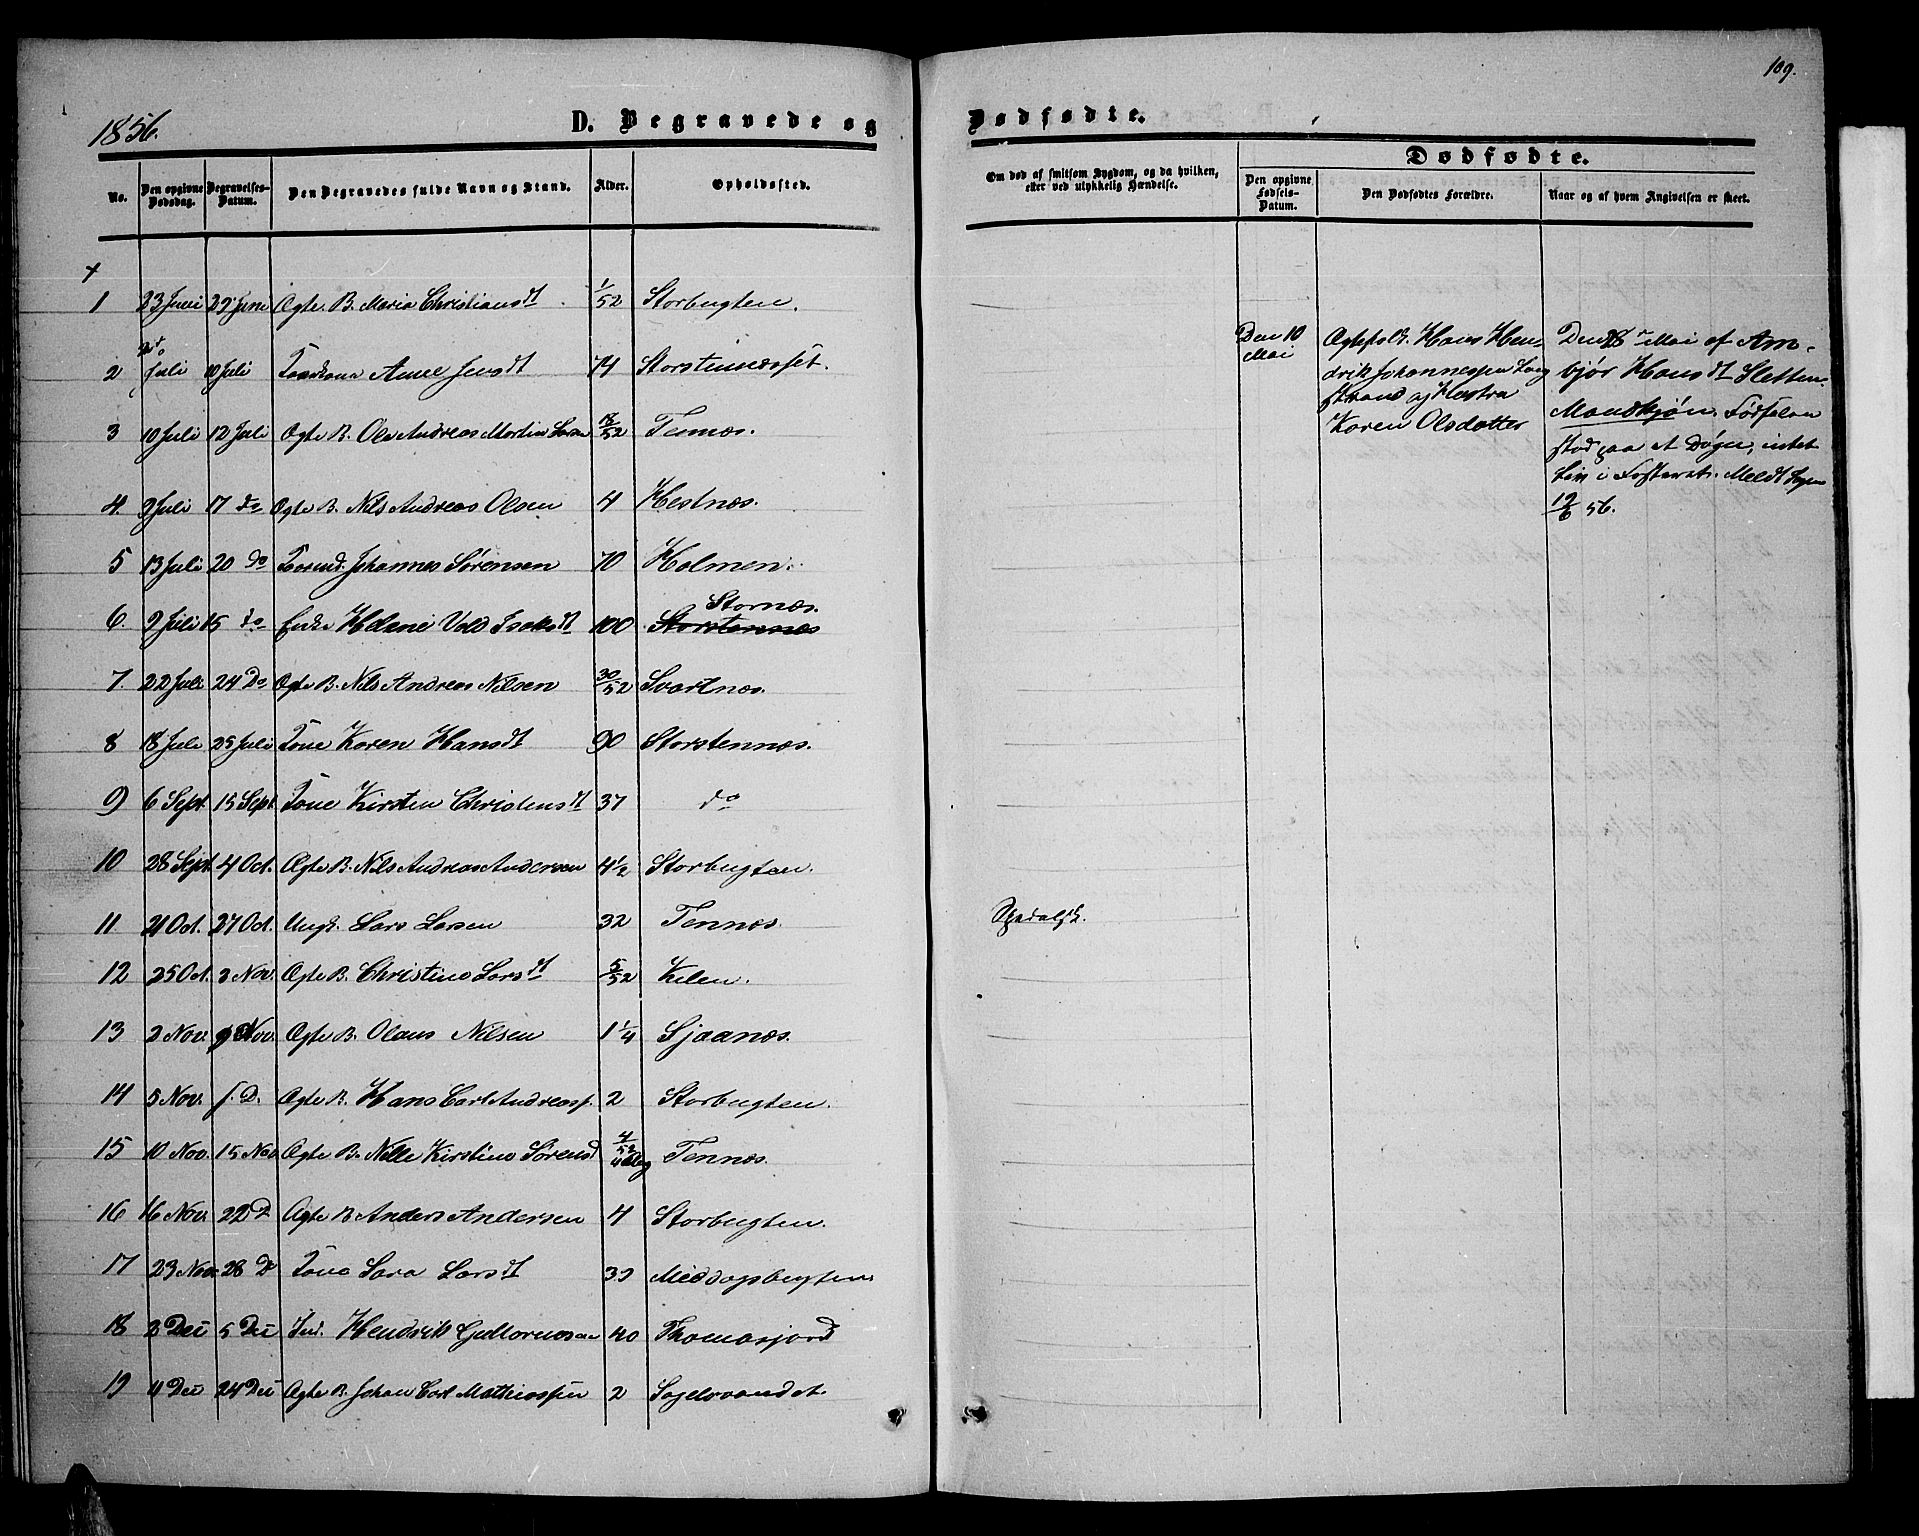 109.
1856.
D. Begravede og
Dødfødte.
No.
Den opgivne Dødsdag.
Begravelses-Datum.
Den Begravedes fulde Navn og Stand.
Alder.
Opholdssted.
Om død af smitsom Sygdom, og da hvilken, eller ved ulykkelig Hændelse.
Dødfødte.
Den opgivne Fødsels-Datum.
Den Dødfødtes Forældre.
Naar og af hvem Angivelsen er skeet.
1 23 Juni 29 Juni Ægte B. Maria Christiansdt 1/52 Storbugten.
2 Juli 10 Juli Anne Jensdt 74 Storsteinnæsset.
3 10 Juli 12 Juli Ægte B. Ole Andreas Martin Larsen /52 Tennæs.
4. 9 Juli 17 do Ægte B. Nils Andreas Olsen 4 Hestnæs.
5 13 Juli 20 do Johannes Sørensen 70 Holmen.
6. 9 Juli 15 do Enke Helene Vold Isaksdt 100 Stornæs.
Storstennæs
7. 22 Juli 24 Do Ægte B. Nils Andreas Nilsen 30/52 Svartnæs.
8 18 Juli 25 Juli Kone Karen Hansdt 90 Storstennæs.
9 6 Sept. 15 Sept. Kone Kirsten Christensdt 37 do
10 28 Sept. 4 Oct. Ægte B. Nils Andreas Andersen 4½ Storbugten.
11 21 Oct. 27 Oct. Ungk. Lars Larsen 32 Tennæs. Spedalsk.
12 25 Oct. 3 Nov. Ægte B. Christine Larsdt 5/52 Kilen.
13 2 Nov. 9 Nov. Ægte B. Olaus Nilsen 1 ¼ Sjaanæs.
14 5 Nov. f. D. Ægte B. Hans Carl Andreass. 2 Storbugten.
15 10 Nov. 15 Nov. Ægte B. Nille Kirstine Sørensd 4/52 Tennæs.
16 16 Nov. 22 D. Ægte B. Anders Andersen 4 Storbugten.
17 23 Nov. 28 D. Kone Sara Larsdt 39 Middagsbugten.
18 3 Dec 5 Dec Ind. Hendrik Guttormsen 40 Thomasjord
19 4 Dec 24 Dec Ægte B. Johan Carl Mathiassen 2 Sagelvvandet.
Den 10 Mai
Ægtefolk. Hans Hen-
drik Johannessen Lang
strand og Hustru
Karen Olsdatter
Den 18 Mai af Arn-
bjør Hansdt Sletten.
Mandkjøn. Fødselen
stod paa et Døgn, intet
Liv i Fosteret. Meldt
12/6 56.